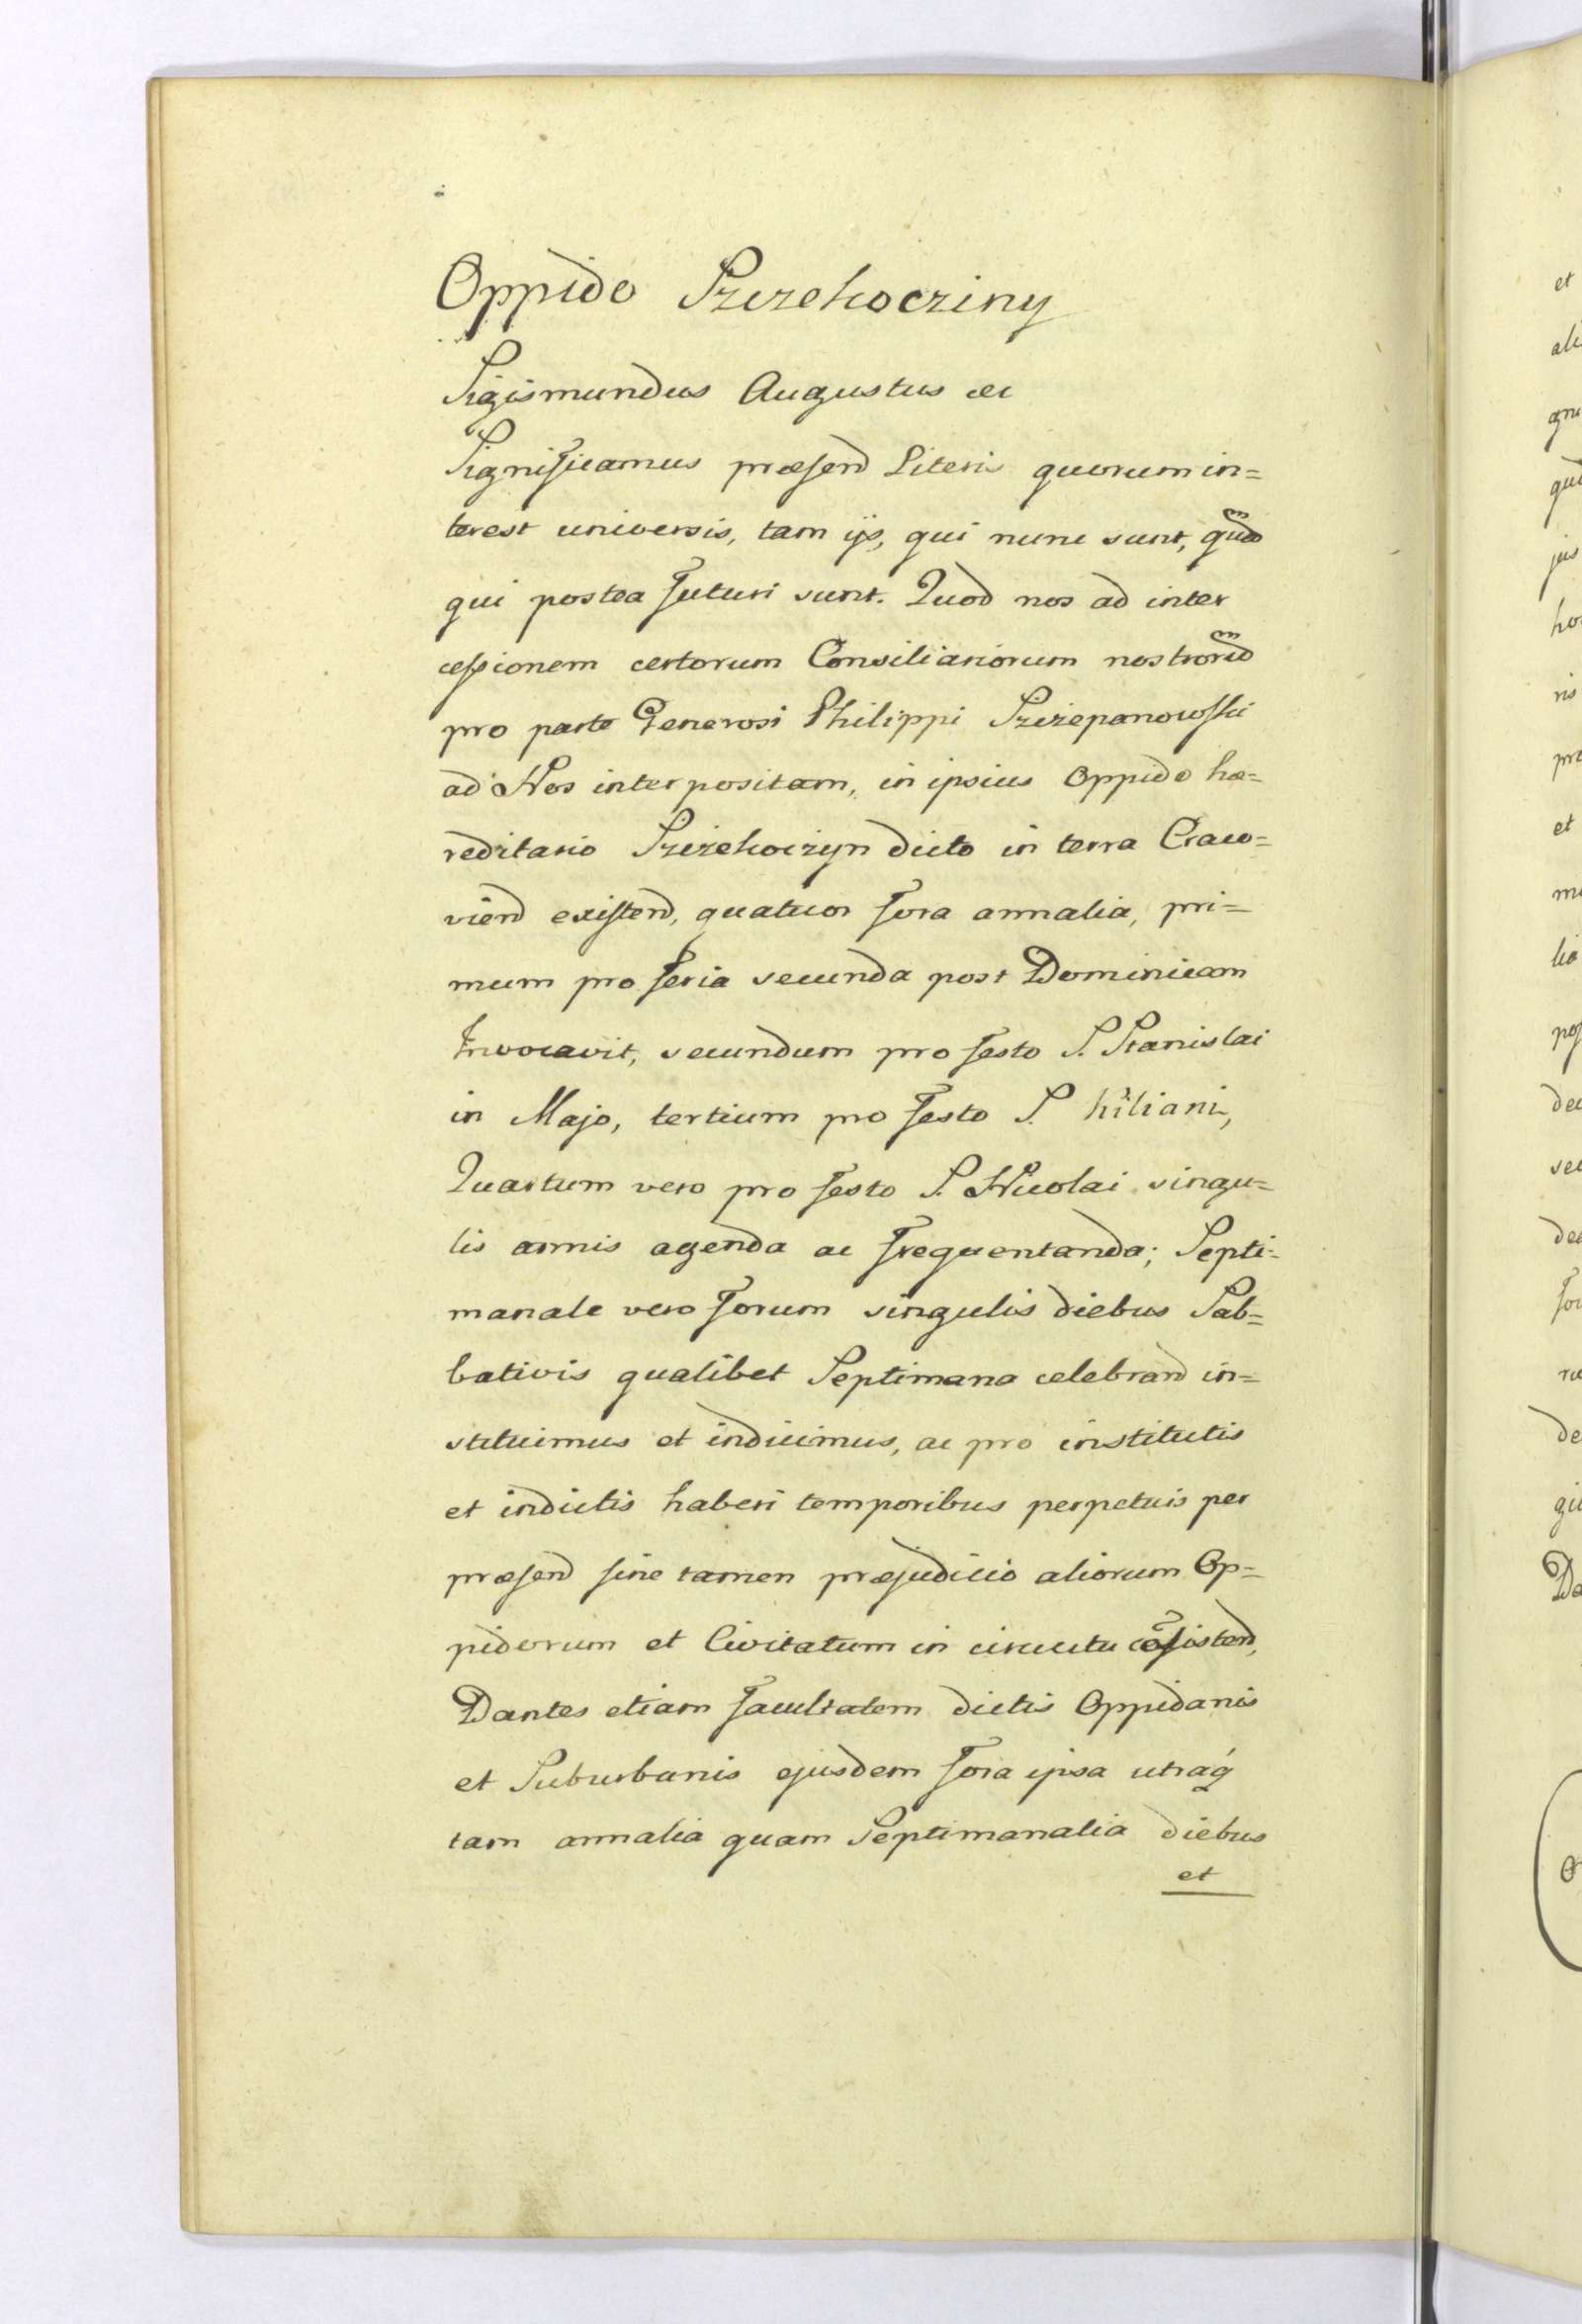 Oppido Szczekocziny
Sigismundus Augustus etc
Significamus præsend Literis quorum in=
terest universis, tam ijs, qui nunc sunt, quam
qui postea futuri sunt. Quod nos ad inter
cessionem certorum Consiliariorum nostrorum
pro parte Generosi Philippi Szczepanowssci
ad Nos interpositam, in ipsius Oppido hæ=
reditario Szczekoczyn dicto in terra Craco=
viend existend, quatuor fora annalia, pri=
mum pro feria secunda post Dominicam
Invocavit, secundum pro festo S. Stanislai
in Majo, tertium pro festo S. Kiliani,
Quartum vero pro festo S. Nicolai singu=
lis annis agenda ac frequentanda; Septi=
manale vero forum singulis diebus Sab=
bativis qualibet Septimana celebrand in=
stituimus et indicimus, ac pro institutis
et indictis haberi temporibus perpetuis per
præsend sine tamen præjudicio aliorum Op=
pidorum et Civitatum in circuitu cōsistend,
Dantes etiam facultatem dictis Oppidanis
et Suburbanis ejusdem fora ipsa utraq́
tam annalia quam Septimanalia diebus
et
et
ali
qui
jus
ho
ris
pre
et
mi
lia
pos
dec
sec
dec
for
de
gi
Da